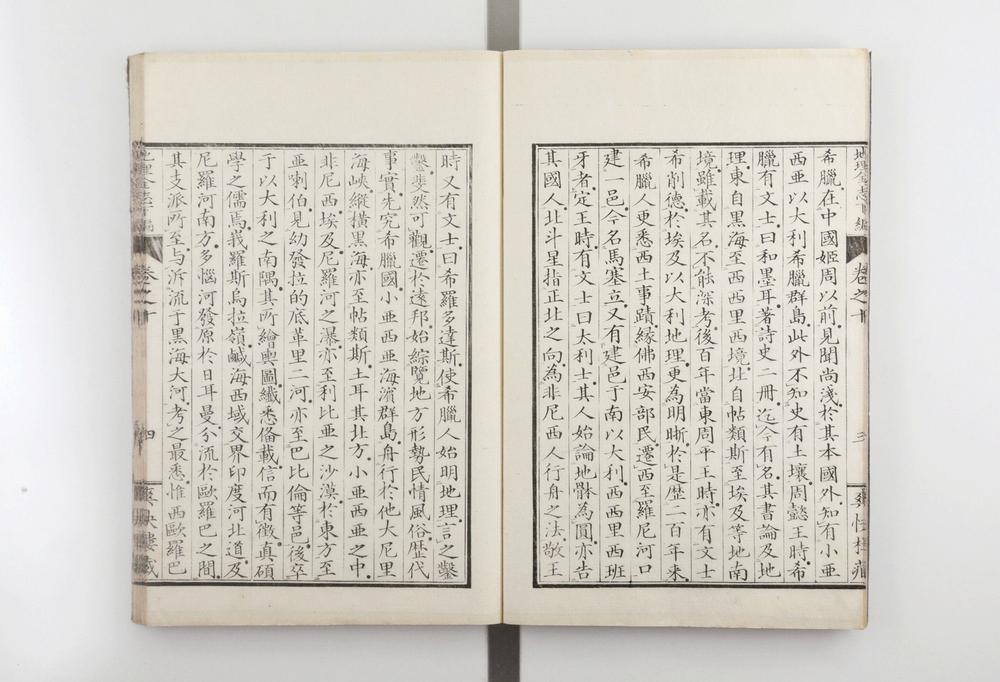 地理全志下編 卷之十 三 爽快樓藏
希臘在中國姬周以前見聞尚淺於其本國外知有小亜
西亜以大利希臘群島此外不知更有土壤周懿王時希
臘有文士曰和墨耳著詩史二冊迄今有名其書論及地
理東自黒海至西西里西境北自帖類斯至埃及等地南
境雖載其名不能深考後百年當東周平王時亦有文士
希削德於埃及以大利地理更為明晰於是歴二百年來
希臘人更悉西土事蹟縁佛西安部民遷西至羅尼河口
建一邑今名馬塞立又有建邑于南以大利西西里西班
牙者定王時有文士曰太利士其人始論地體為圓亦告
其國人北斗星指正北之向為非尼西人行舟之法敬王
時又有文士曰希羅多達斯使希臘人始明地理言之鑿
鑿斐然可觀遷於遠邦始綜覽地方形勢民情風俗歴代
事實先究希臘國小亜西亜海濱群島舟行於他大尼里
海峽縱橫黒海亦至帖類斯土耳其北方小亜西亜之中
非尼西埃及尼羅河之瀑亦至利比亜之沙漠於東方至
亜喇伯見幼發拉的底革里二河亦至巴比倫等邑後卒
于以大利之南隅其所繪輿圖纖悉俻載信而有徵真碩
學之儒焉峩羅斯烏拉嶺鹹海西域交界印度河北道及
尼羅河南方多惱河發原於日耳曼分流於歐羅巴之間
其支派所至与泝流于黒海大河考之最悉惟西歐羅巴
地理全志下編 卷之十 四 爽快樓藏